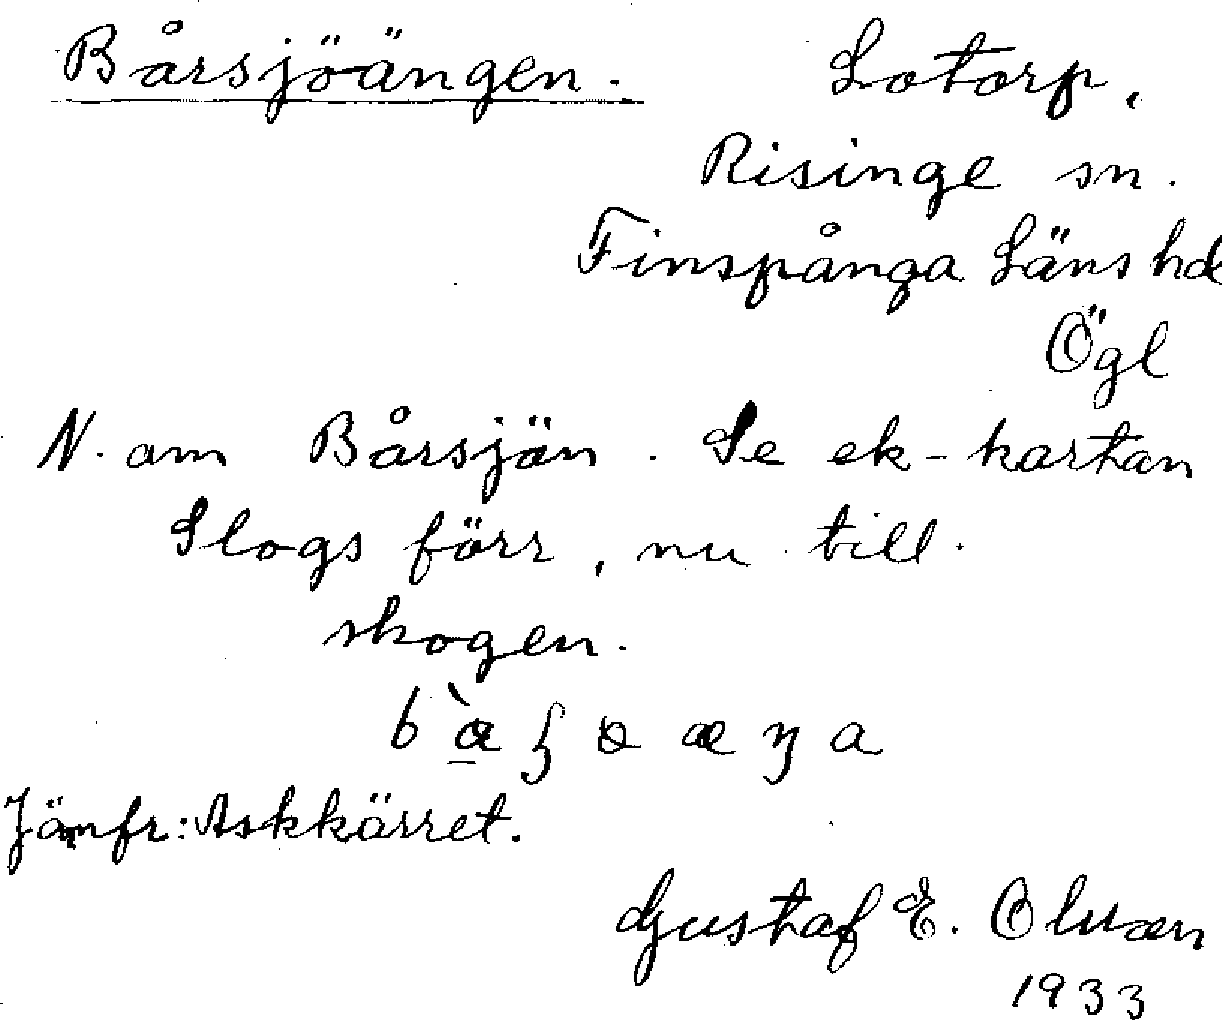 Bårsjöängen. Lotorp,
Risinge sn.
Finspånga Läns hd
Ögl
N. om Bårsjön. Se ek-kartan
Slogs förr, nu till
skogen.
Jämfr: Askkärret.
Gustaf E.
1933